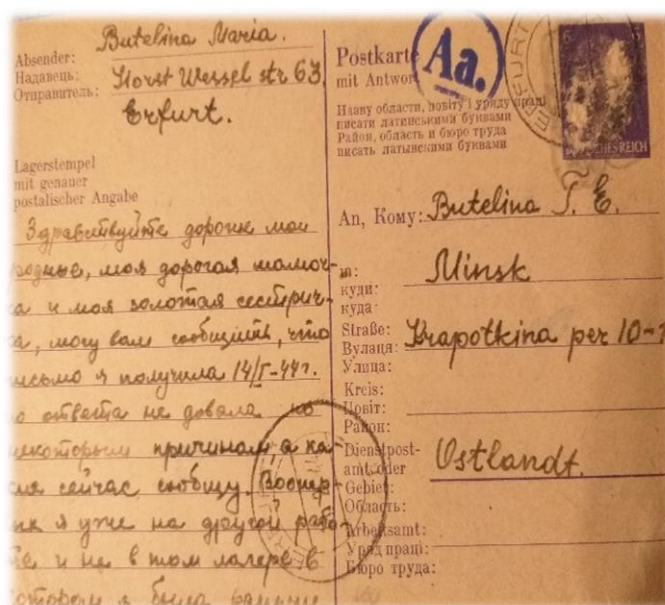 Absender:
Надавець:
Отправитель:
Butelina Maria.
Horst Wessel str 63.
Erfurt.
Lagerstempel
mit genauer
postalischer Angabe
Здравствуйте дорогие мои
родные, моя дорогая мамоч-
ка и моя золотая сестрич-
ка, могу вам сообщить, что
письмо я получила 14/I-44г.
но ответа не довала по
некоторым причинам, а ка-
сейчас сообщу. Воопер-
вых я уже на другой рабо-
те и не в том лагере в
котором я была раньше
Postkarte
mit Antwort
Aa.
ERFURT
6
DEUTSCHES REICH
Назву области, повіту і уряду праці
писати латинськими буквами
Район, область и бюро труда
писать латынскими буквами
An, Кому: Butelina T. E.
in:
куди:
куда:
Minsk
Straße:
Вулаця:
Улица:
Krapotkina per 10-
Kreis:
Повіт:
Район:
Dienstpost-
amt oder
Gebiet:
Область:
Ostlandt.
Arbeitsamt:
Уряд праці:
Бюро труда: